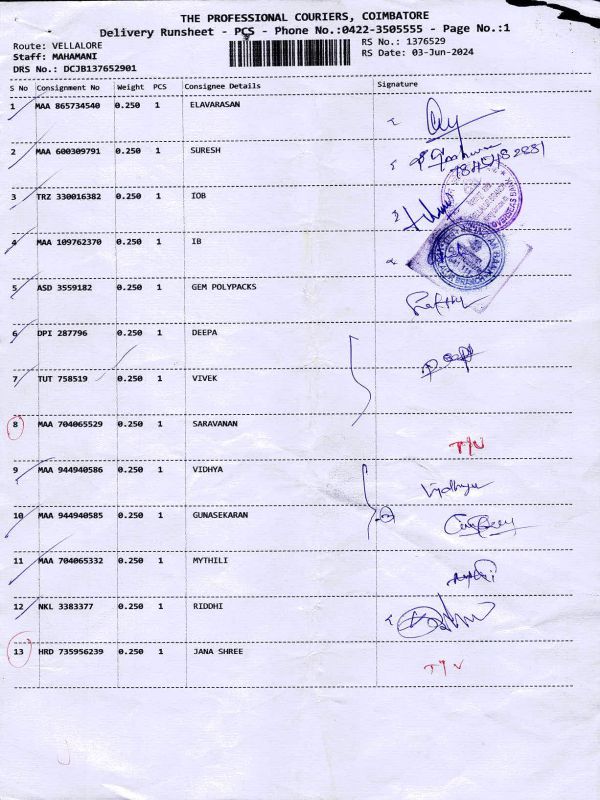 THE PROFESSIONAL COURIERS, COIMBATORE
Delivery Runsheet - PCS - Phone No.:0422-3505555 - Page No.:1
Route: VELLALORE
RS No.: 1376529
Staff: MAHAMANI
RS Date: 03-Jun-2024
DRS No.: DCJB137652901
S No Consignment No Weight PCS Consignee Details Signature
1 MAA 865734540 0.250 1 ELAVARASAN
2 MAA 600309791 0.250 1 SURESH
3 TRZ 330016382 0.250 1 IOB
4 MAA 109762370 0.250 1 IB
5 ASD 3559182 0.250 1 GEM POLYPACKS
6 DPI 287796 0.250 1 DEEPA
7 TUT 758519 0.250 1 VIVEK
8 MAA 704065529 0.250 1 SARAVANAN
9 MAA 944940586 0.250 1 VIDHYA Vidhya
10 MAA 944940585 0.250 1 GUNASEKARAN
11 MAA 704065332 0.250 1 MYTHILI
12 NKL 3383377 0.250 1 RIDDHI
13 HRD 735956239 0.250 1 JANA SHREE